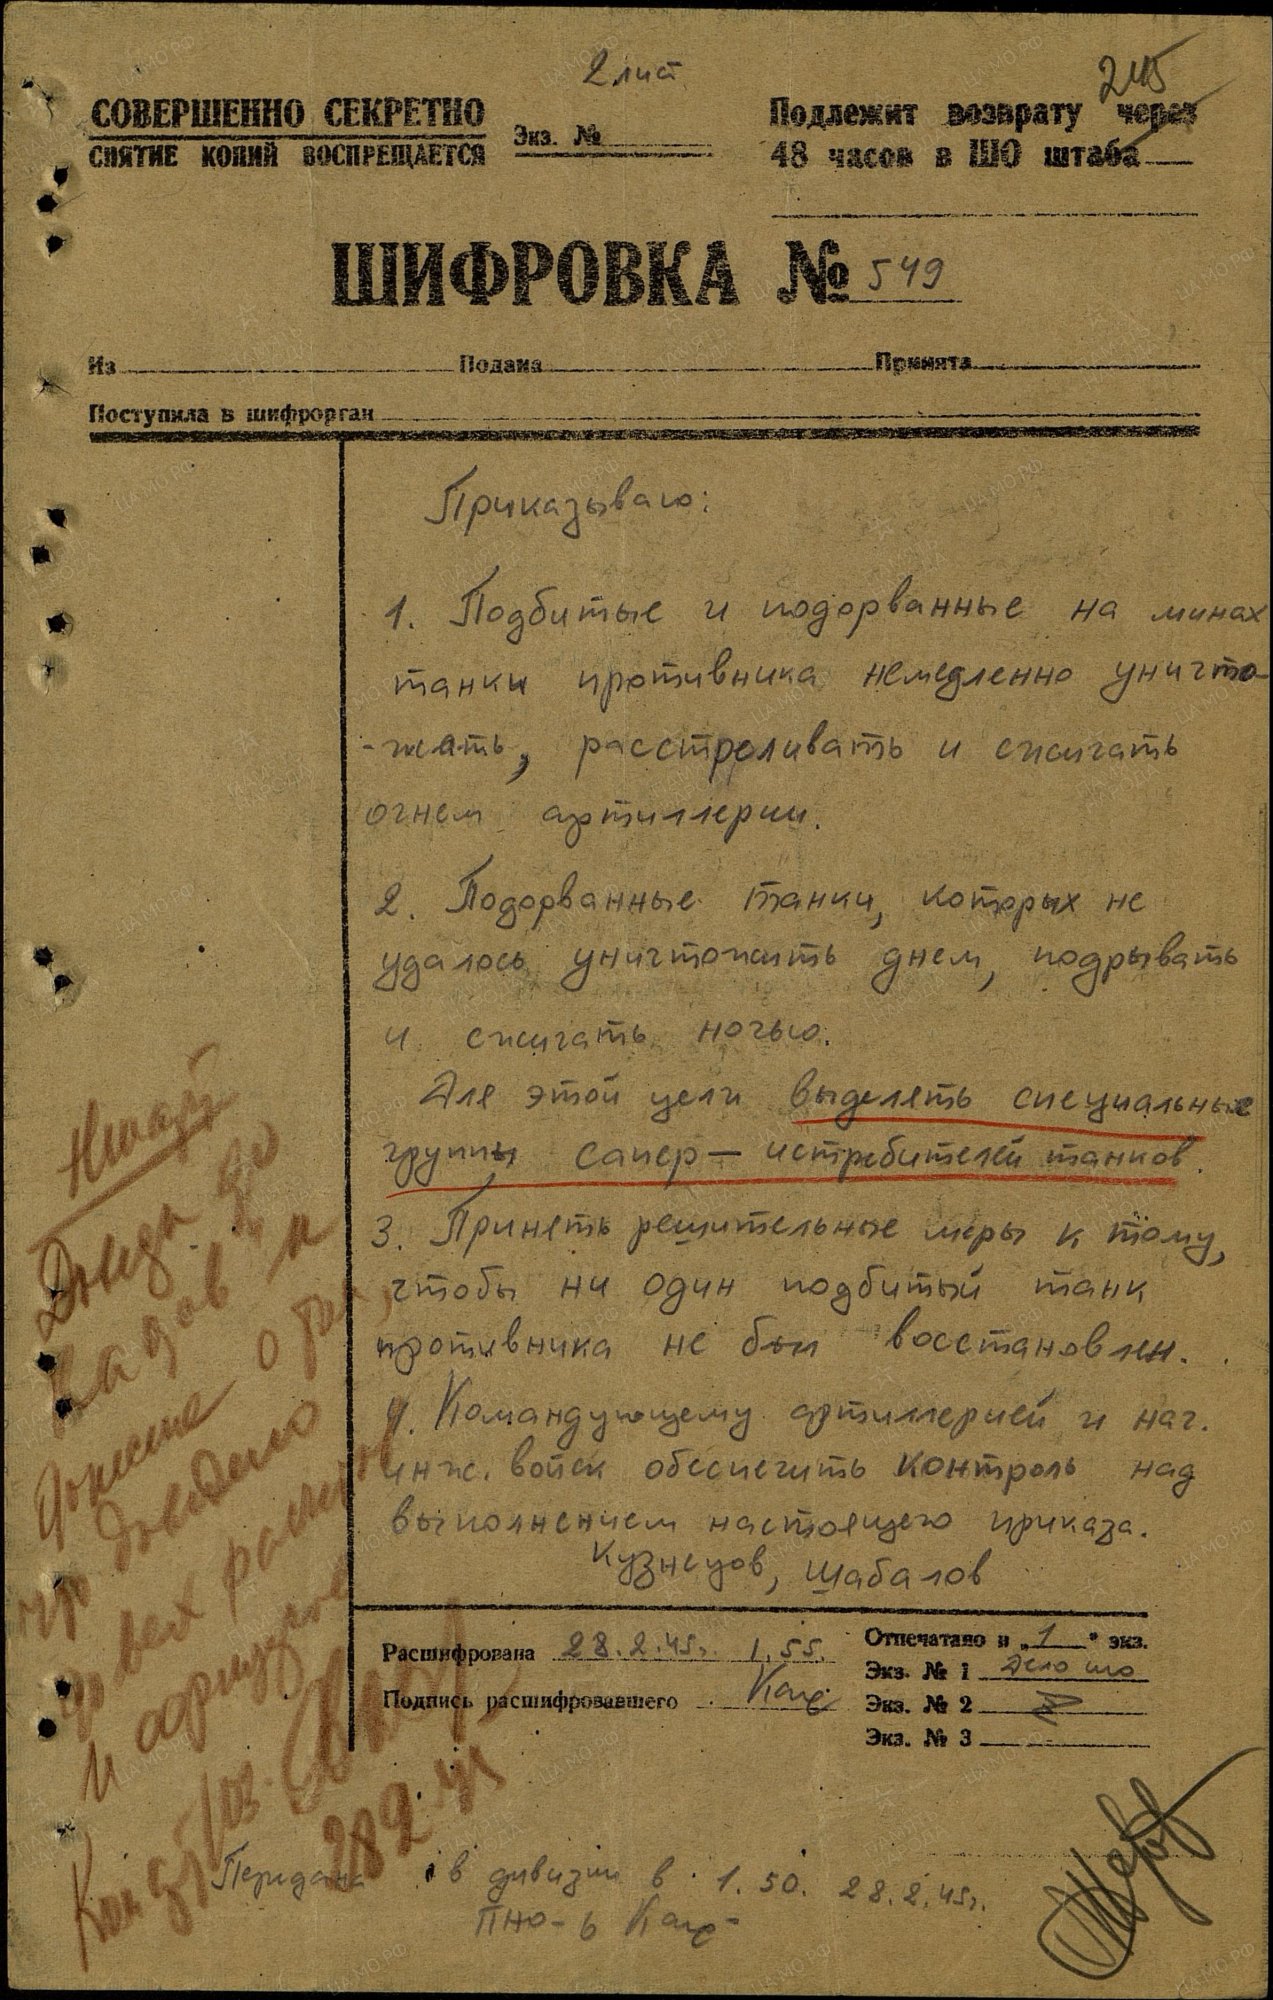 2 лист
245
СОВЕРШЕННО СЕКРЕТНО
СНЯТИЕ КОПИЙ ВОСПРЕЩАЕТСЯ
Экз. №
Подлежит возврату через
48 часов в ШО штаба
ШИФРОВКА № 549
Из Подана Принята
Поступила в шифрорган
Приказываю:
1. Подбитые и подорванные на минах
танки противника немедленно уничто-
-жать, расстреливать и сжигать
огнем артиллерии.
2. Подорванные танки, которых не
удалось уничтожить днем, подрывать
и сжигать ночью.
Для этой цели выделять специальные
группы сапер — истребителей танков.
3. Принять решительные меры к тому,
чтобы ни один подбитый танк
противника не был восстановлен.
4. Командующему артиллерией и нач.
инж. войск обеспечить контроль над
выполнением настоящего приказа.
Кузнецов, Шабалов
до
о том,
что доведено
до всех
и
28 2 45
Расшифрована 28.2.45г. 1.55.
Подпись расшифровавшего
Отпечатано в „1" экз.
Экз. № 1 Дело шо
Экз. № 2
Экз. № 3
Передана в дивизии в 1.50. 28.2.45г.
ПНО-6